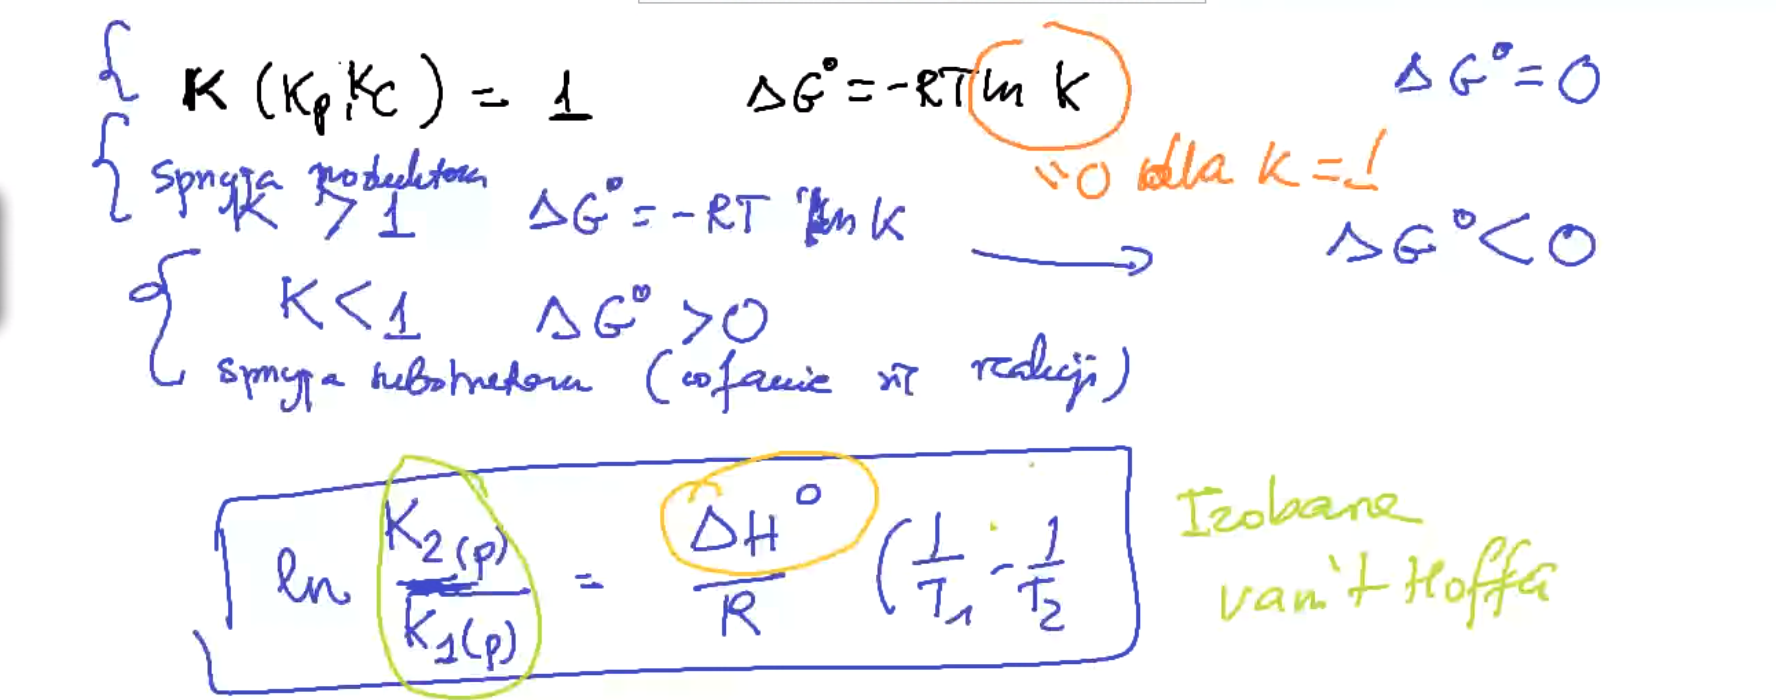 K (Kp, Kc) = 1 ΔG° = -RT ln K ΔG° = 0
"0 dla K = 1
sprzyja produktom
K > 1 ΔG° = -RT ln K → ΔG° < 0
K < 1 ΔG° > 0
sprzyja substratom (cofanie się reakcji)
ln K2(p)/K1(p) = ΔH°/R (1/T1 - 1/T2
Izobara
van't Hoffa